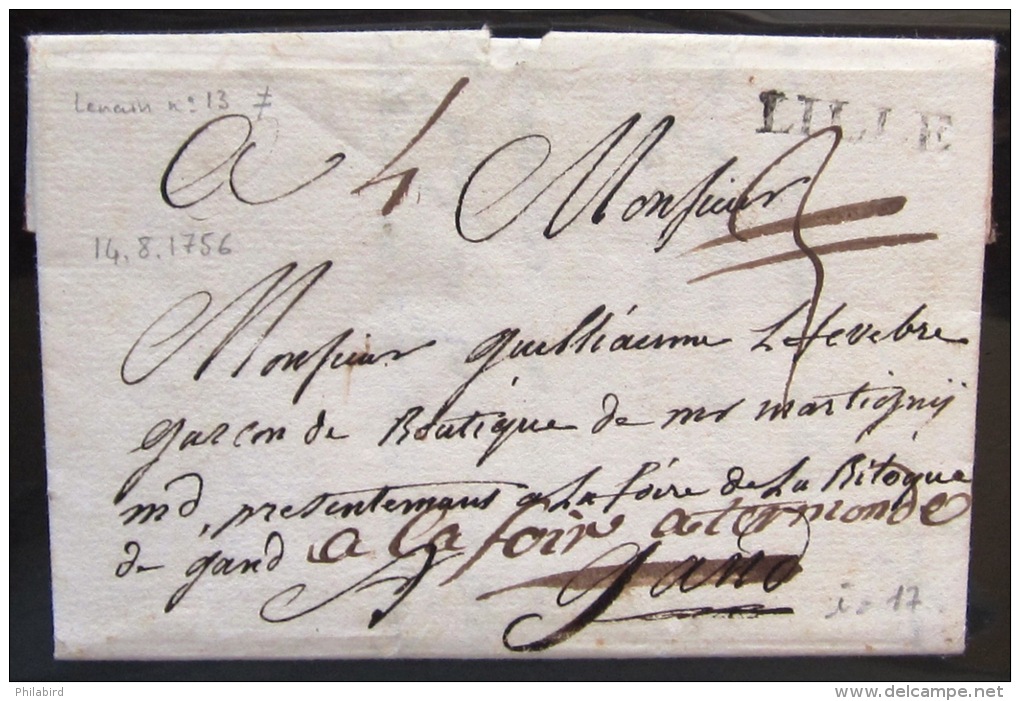 Lenain n° 13
LILLE
A 4 Monsieur 3
14.8.1756
Monsieur guilliaume Lefevebre
garcon de Boutique de mr martignij
md, presentemans a La foire de La Bitoque
de gand a la foir a termonde
gand
i = 17
Philabird
www.delcampe.net